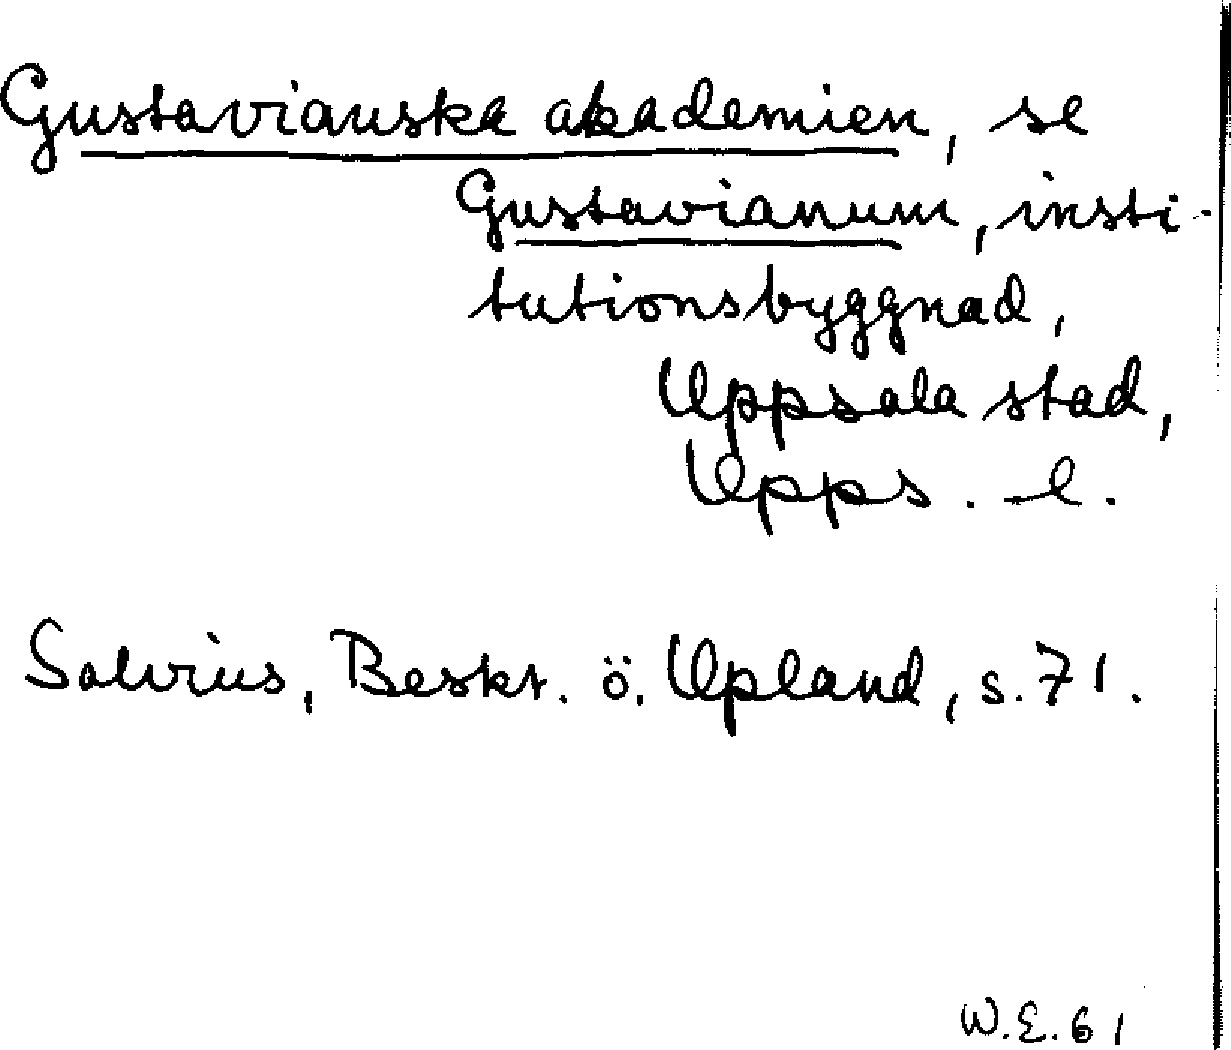 Gustavianska akademien, se
Gustavianum, insti-
tutionsbyggnad,
Uppsala stad,
Upps. l.
Salvius, Beskr. ö. Upland, s. 71.
W.E. 61